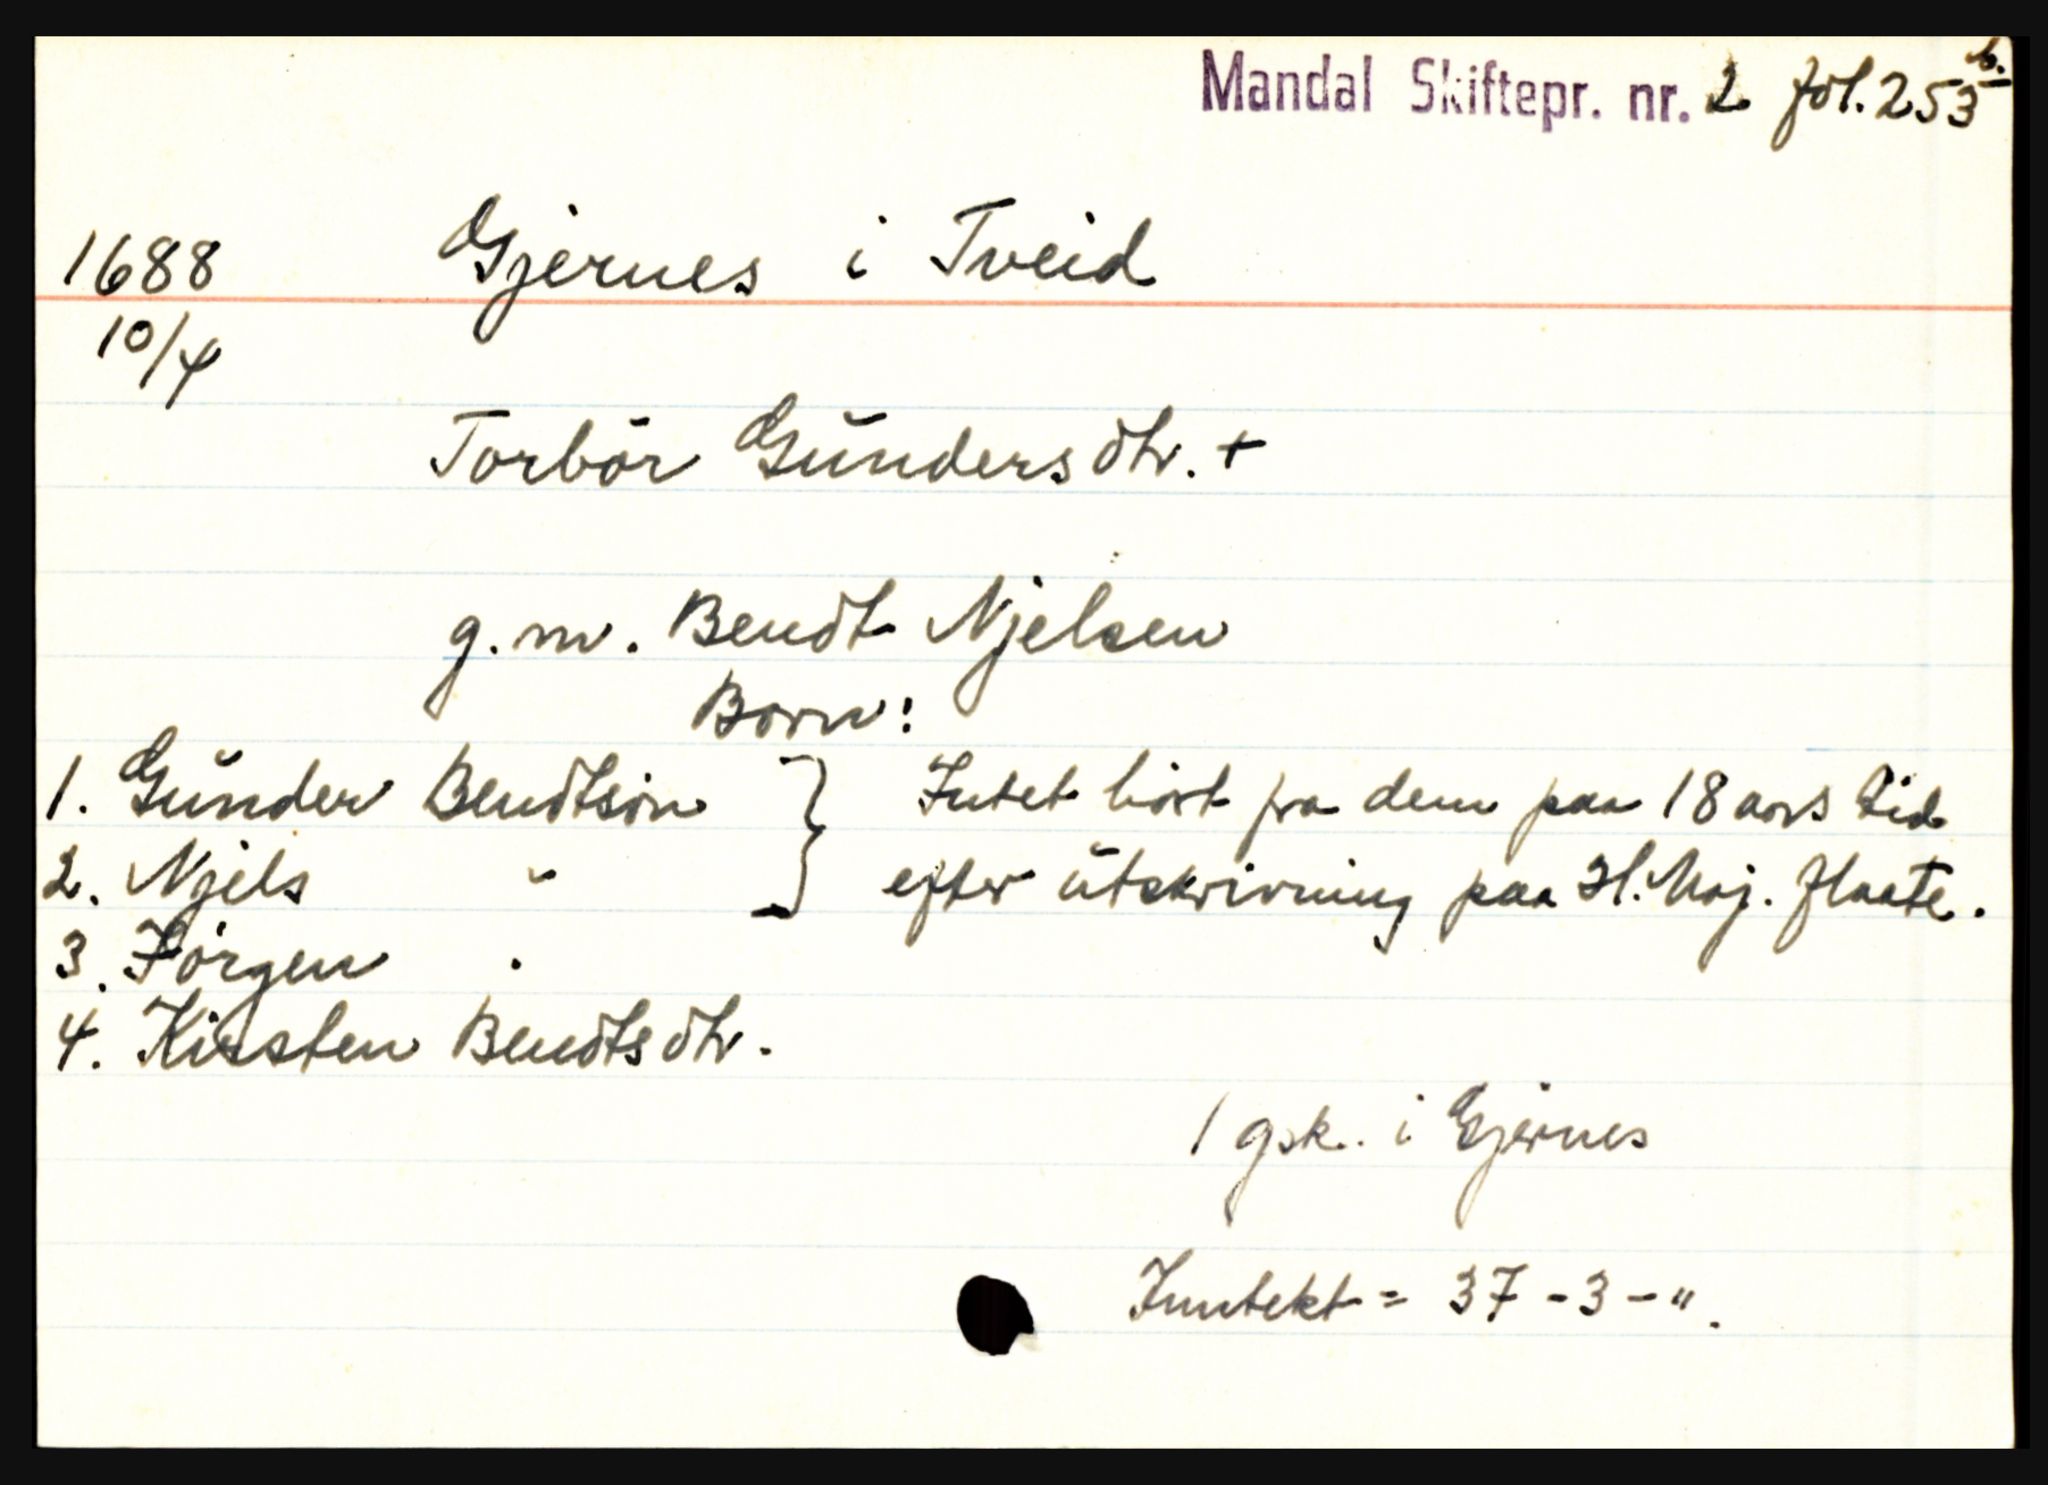 Mandal Skiftepr. nr. 2 fol. 253 b.
1688 Gjernes i Tveid
10/4
Torbör Gŭndersdtr. +
g. m. Bendt Njelsen
Born:
1. Gŭnder Bendtsön } Intet hört fra dem paa 18 aars tid
2. Njels " } efter ŭtskrivning paa H. Maj. flaate.
3. Jörgen "
4. Kirsten Bendtsdtr.
1 gsk. i Gjernes
Inntekt = 37 - 3 - ".